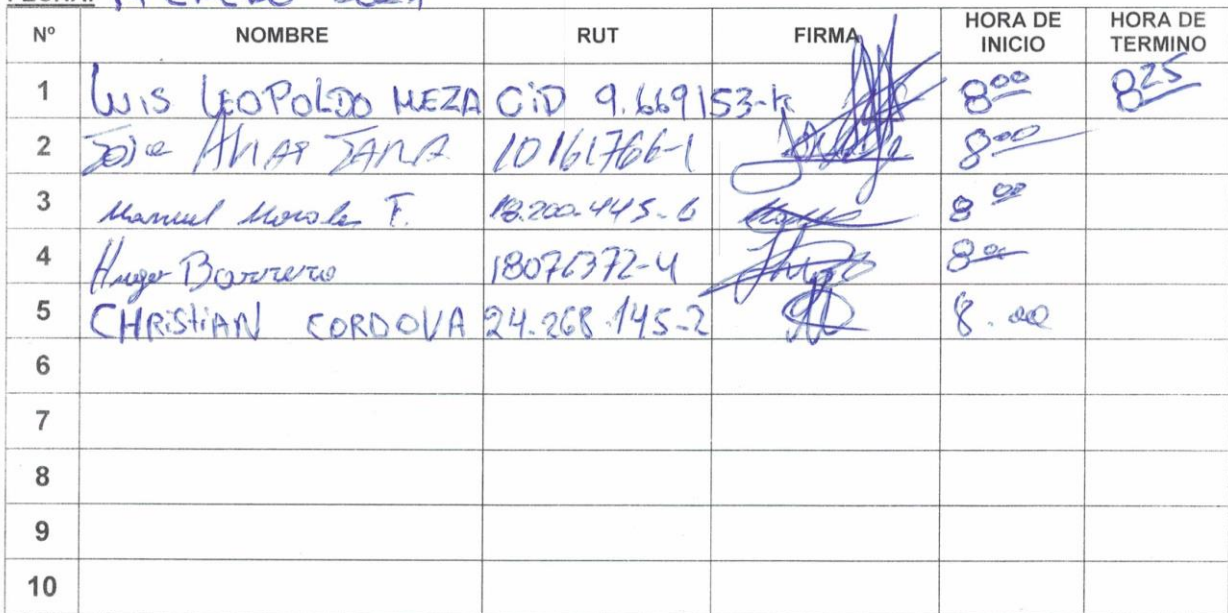 Nº NOMBRE RUT FIRMA HORA DE INICIO HORA DE TERMINO
1 LUIS LEOPOLDO MEZA CID 9.669153-k 8:00 8:25
2 10161766-1 8:00
3 Manuel Morales F. 8:00
4 Hugo Barrera 8:00
5 CHRISTIAN CORDOVA 24.268.145-2 8.00
6
7
8
9
10